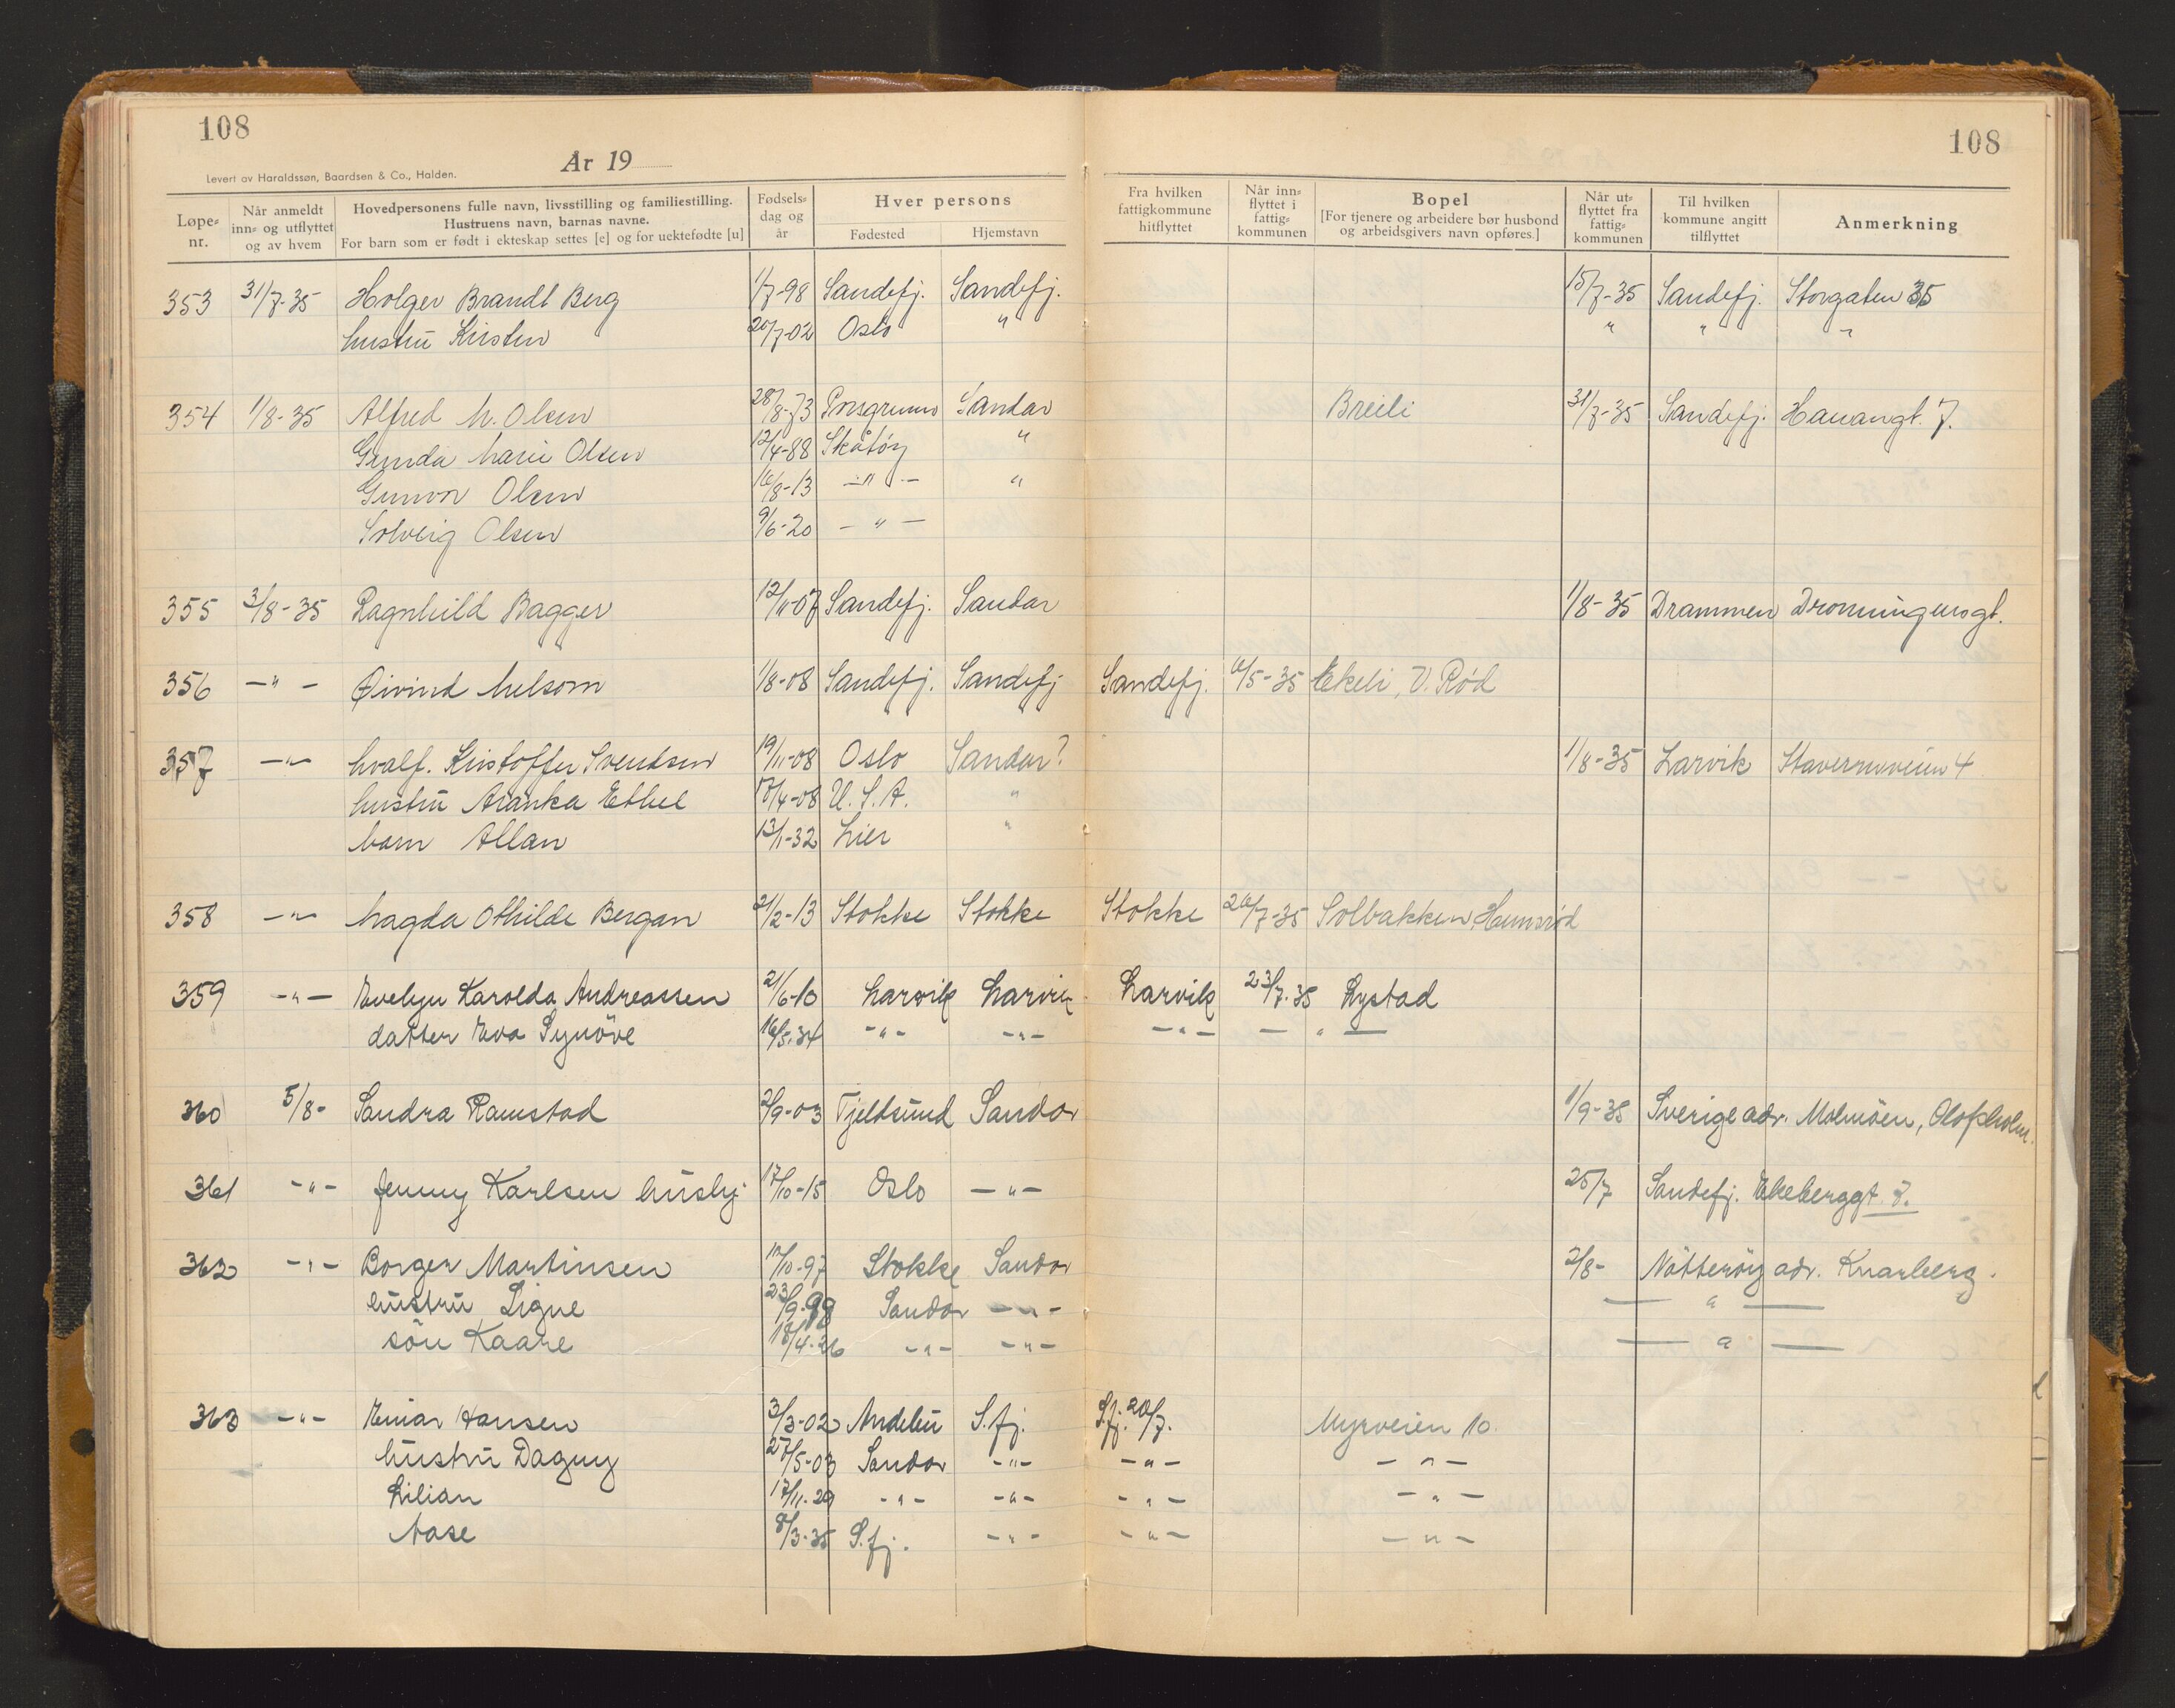 108 108
År 19
Levert av Haraldssøn, Baardsen & Co., Halden.
Løpe-nr. Når anmeldt inn- og utflyttet og av hvem Hovedpersonens fulle navn, livsstilling og familiestilling. Hustruens navn, barnas navne. For barn som er født i ekteskap settes [e] og for uektefødte [u] Fødsels-dag og år Hver persons Fødested Hjemstavn Fra hvilken fattigkommune hitflyttet Når inn-flyttet i fattig-kommunen Bopel [For tjenere og arbeidere bør husbond og arbeidsgivers navn opføres.] Når ut-flyttet fra fattig-kommunen Til hvilken kommune angitt tilflyttet Anmerkning
353 31/7-35 Holger Brandt Berg 1/7-98 Sandefj. Sandefj. 15/7-35 Sandefj. Storgaten 35
hustru Kirsten 20/7-02 Oslo " " " "
354 1/8-35 Alfred M. Olsen 28/8-73 Porsgrunn Sandar Breili 31/7-35 Sandefj. Hauangt. 7.
Gunda Marie Olsen 12/4-88 Skåtøy "
Gunvor Olsen 16/8-13 -"- "
Solveig Olsen 9/6-20 -"-
355 3/8-35 Ragnhild Bagger 12/11-07 Sandefj. Sandar 1/8-35 Drammen Dronningensgt.
356 -"- Øivind Melsom 1/8-08 Sandefj. Sandefj Sandefj. /5-35 Ekeli, V. Rød
357 -"- hvalf. Kristoffer Svendsen 19/11-08 Oslo Sandar? 1/8-35 Larvik Stavernsveien 4
hustru Aranka Ethel 18/4-08 U.S.A. "
barn Allan 13/1-32 Lier "
358 -"- Magda Othilde Bergan 21/2-13 Stokke Stokke Stokke 26/7-35 Solbakken, Hunsrød
359 -"- Evelyn Karolda Andreassen 21/6-10 Larvik Larvik Larvik 23/7-35 Lystad
datter Eva Synöve 16/5-34 -"- -"- -"- -"-
360 5/8- Sandra Ramstad 2/9-03 Tjeldsund Sandar 1/9-35 Sverige adr. Malmöen, Olofsholm.
361 -"- Jenny Karlsen hushj. 17/10-15 Oslo -"- 25/7 Sandefj. Ekeberggt 7.
362 -"- Borger Martinsen 10/10-97 Stokke Sandar 2/8- Nötteröy adr. Knarberg.
hustru Signe 23/9-98 Sandar -"- -"-
sön Kaare 18/4-26 -"- -"- -"-
363 -"- Einar Hansen 3/3-02 Andebu S.fj. S.fj. 20/7. Myrveien 10.
hustru Dagny 27/5-03 Sandar -"- -"- -"-
Lilian 17/11-29 -"- -"- -"- -"-
Aase 8/3-35 S.fj. -"- -"- -"-